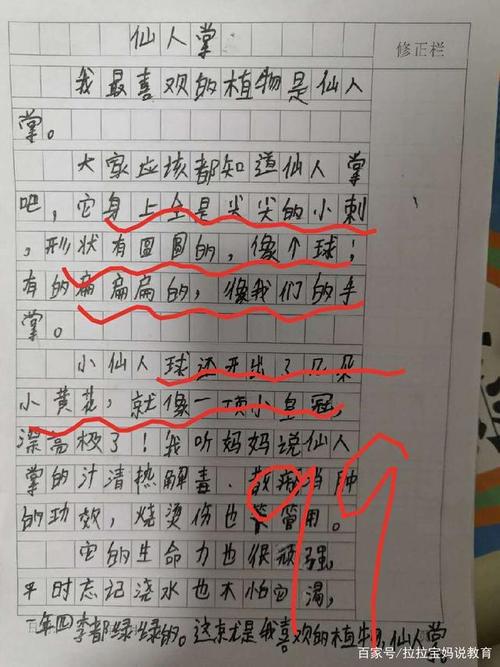 仙人掌
修正栏
我最喜欢的植物是仙人
掌。
大家应该都知道仙人掌
吧,它身上全是尖尖的小刺
,形状有圆圆的,像个球;
有的扁扁扁的,像我们的手
掌。
小仙人球还开出了几朵
小黄花,就像一顶小皇冠,
漂亮极了!我听妈妈说仙人
掌的汁清热解毒、散瘀消肿
的功效,烧烫伤也管用。
它的生命力也很顽强,
平时忘记浇水也不怕它渴,
一年四季都绿绿的。这就是我喜欢的植物,仙人掌
百家号/拉拉宝妈说教育